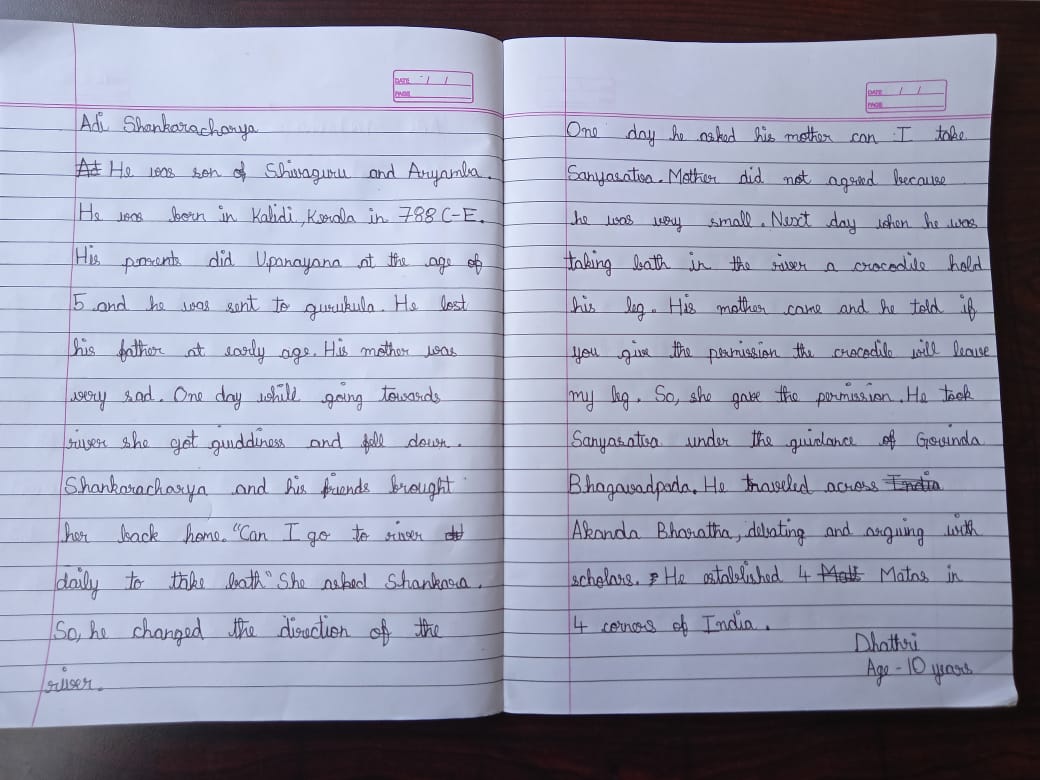 DATE / /
PAGE
Adi Shankaracharya
He was son of Shivaguru and Aryamba.
He was born in Kalidi, Kerala in 788 C-E.
His parents did Upanayana at the age of
5 and he was sent to gurukula. He lost
his father at early age. His mother was
very sad. One day while going towards
river she got guiddiness and fell down.
Shankaracharya and his friends brought
her back home. "Can I go to river
daily to take bath" She asked Shankara.
So, he changed the direction of the
river.
DATE / /
PAGE
One day he asked his mother can I take
Sanyasatva. Mother did not agreed because
he was very small. Next day when he was
taking bath in the river a crocodile hold
his leg. His mother came and he told if
you give the permission the crocodile will leave
my leg. So, she gave the permission. He took
Sanyasatva under the guidance of Govinda
Bhagavadpada. He traveled across India
Akanda Bharatha, debating and arguing with
scholars. He established 4 Matt Matas in
4 corners of India.
Dhathri
Age - 10 years